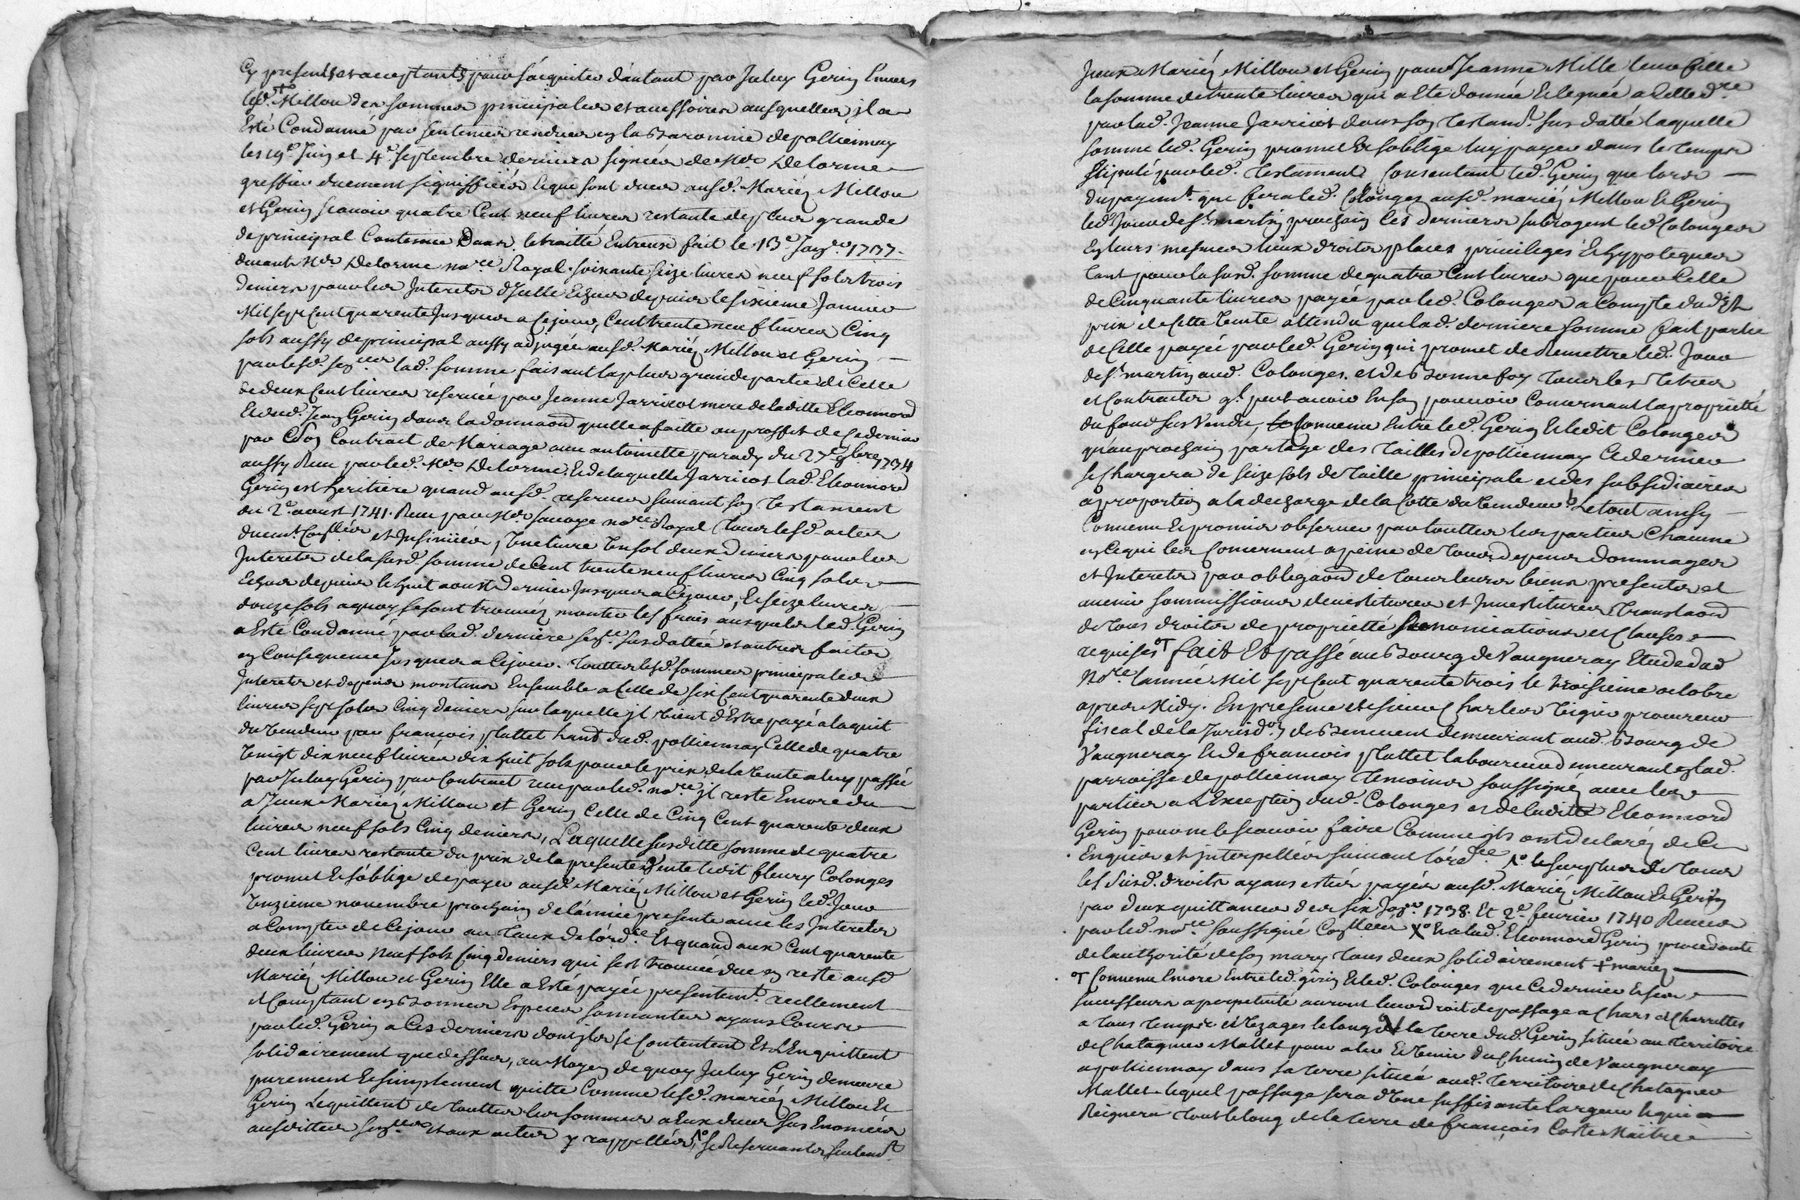 Cy presents et acceptants pour s'acquiter d'autant par Julny Gerin Envers
led. Millon des sommes principales et accessoires ausquelles il a
Esté Condamné par sentences rendues en la Baronnie de pollionnay
les 19e Juin et 4e septembre derniers signées de Me Delorme
greffier duement signiffiées Et que sont dues ausd. Mariés Millon
et Gerin scavoir quatre Cent neuf livres restante de plus grande
de principal Contenue Dans le traitté Entreux fait le 13e Janvr 1737
devant Me Delorme nore Royal. soixante seize livres neuf sols trois
deniers pour les Interets d'Icelle Echus depuis le sixieme Janvier
Mil sept Cent quarente Jusques a Cejour, Cent trente neuf livres Cinq
sols aussy de principal aussy adjugée ausd. Mariés Millon et Gerin
par lesd. sences lad. somme faisant la plus grande partie de Celle
de deux Cent livres reservée par Jeanne Jarricot mere de laditte Eleonnord
Et dud. Jean Gerin dans la donnaon quelle a faitte au proffit de Ce dernier
par son Contrait de Mariage avec antoinette parady du 27e 9bre 1734
aussy Reçu par led. Me Delorme, Et de laquelle Jarricot lad. Eleonnord
Gerin est heritiere quand ausd. reserves suivant son Testament
du 2e aoust 1741. Reçu par Me sauvage nore Royal Tous lesd. actes
duemt Conllés et Insinués, Une livre Un sol deux deniers pour les
Interets de la susd. somme de Cent trente neuf livres Cinq sols
Echus depuis le huit aoust dernier Jusques a Cejour, Et seize livres
douze sols a quoy se sont trouvés monter les frais ausquels led. Gerin
a Esté Condamné par lad. derniere sence sus dattée et autres faites
en Consequence Jusques a Cejour. Touttes lesd. sommes principales
Interets et depens montans Ensemble a Celle de six Cent quarente deux
livres sept sols Cinq deniers sur laquelle il vient d'Estre payé a l'acquit
du Vendeur par françois plattet dud. pollionnay Celle de quatre
Vingt dix neuf livres dix huit sols pour le prix de la Vente a luy passée
par Julny Gerin par Contract reçu par led. nore il reste Encore du
a Iceux Mariés Millon et Gerin Celle de Cinq Cent quarente deux
livres neuf sols Cinq deniers, Laquelle susditte somme de quatre
Cent livres restante du prix de la presente Vente ledit fleury Colonges
promet Et s'oblige de payer ausd. Mariés Millon et Gerin led. Jour
Unzieme novembre prochain de l'année presente avec les Interets
a Compter de Cejour au Taux de l'ordce Et quand aux Cent quarente
deux livres neuf sols Cinq deniers qui se st trouvée due en reste ausd.
Mariés Millon et Gerin Elle a Esté payée presentemt. reellement
et Comptant en Bonnes Especes sonnantes ayans Cours
par led. Gerin a Ces derniers dont ils se Contentent Et L'Enquittent
solidairement que dessus, au Moyen de quoy Julny Gerin demeure
purement Et simplement quitte Comme lesd. mariés Millon Et
Gerin Lequittent de Touttes les sommes a Eux dues sus Enoncées
ausdittes sences et aux actes y rappellés, se Reservantes seulemt.
Iceux Mariés Millon et Gerin pour Jeanne Mille leur fille
la somme de trente livres qui a Eté donnée Et leguée a Cette dre
par lad. Jeanne Jarricot dans son Testamt. sus datté laquelle
somme led. Gerin promet Et s'oblige luy payer dans le temps
stipulé par led. testament Consentant led. Gerin que lors
du payemt. que fera led. Colonges ausd. mariés Millon Et Gerin
led. Jour de St. martin prochain Ces derniers subrogent led. Colonges
En leurs mesmes lieux droits places privileges Et hypoteques
tant pour la susd. somme de quatre Cent livres que pour Celle
de Cinquante livres payée par led. Colonges a Compte dud.
prix de Cette Vente attendu que lad. derniere somme fait partie
de Celle payée par led. Gerin qui promet de Remettre led. Jour
de St. martin aud. Colonges et de Bonne foy tous les Titres
et Contraits qt. peut avoir En son pouvoir Concernant la propriété
du fond sus Vendu, Convenu Entre led. Gerin Et ledit Colonges
qu'au prochain partage des Tailles de pollionnay Ce dernier
se Chargera de seize sols de Taille principale et des subsidiaires
a proportion a la decharge de la Cotte du Vendeur Le tout ainsy
Convenu Et promis observer par touttes les parties Chacune
en Ce qui les Concernent a peine de tous depens dommages
et Interets par obligaon de tous leurs biens presents et
avenir sommissions devestitures et Investitures translaon
de tous droits de proprieté Renonciations et Clauses
requises fait Et passé au Bourg de Vaugneray Etude dud
nore l'année Mil sept Cent quarente trois le troisieme octobre
apres Midy. En presence de sieur Charles procureur
fiscal de la Jurisdon de Benevent demeurant aud. Bourg de
Vaugneray Et de francois plattet laboureur demeurant en lad.
parroisse de pollionnay Temoins soussignés avec les
parties a L'Exception dud. Colonges et de laditte Eleonnord
Gerin pour ne le scavoir faire Comme ils ont declarés de Ce
Enquis et interpellés suivant l'ordce le surplus de tous
les susd. droits ayans estés payés ausd. Mariés Millon Et Gerin
par deux quittances des six Janvr. 1738. Et 2e fevrier 1740 Reçues
par led. nore soussigné Conllées Xo Et a lad. Eleonnord Gerin procedante
de l'authorité de son mary Tous deux solidairement + mariés
Convenu Encore Entre led. gerin Et led. Colonges que Ce dernier Et ses
successeurs a perpetuité auront leur droit de passage a Chars Et Charrettes
a tous temps et Uzages le long de la terre dud. Gerin située au territoire
de Chatagnier Mallet pour aler Et Venir du Chemin de Vaugneray
a pollionnay dans sa terre située aud. territoire de Chatagnier
Mallet lequel passage sera d'une suffisante largeur Et qui
Reignera tout le long de la terre de françois Coste Maitre